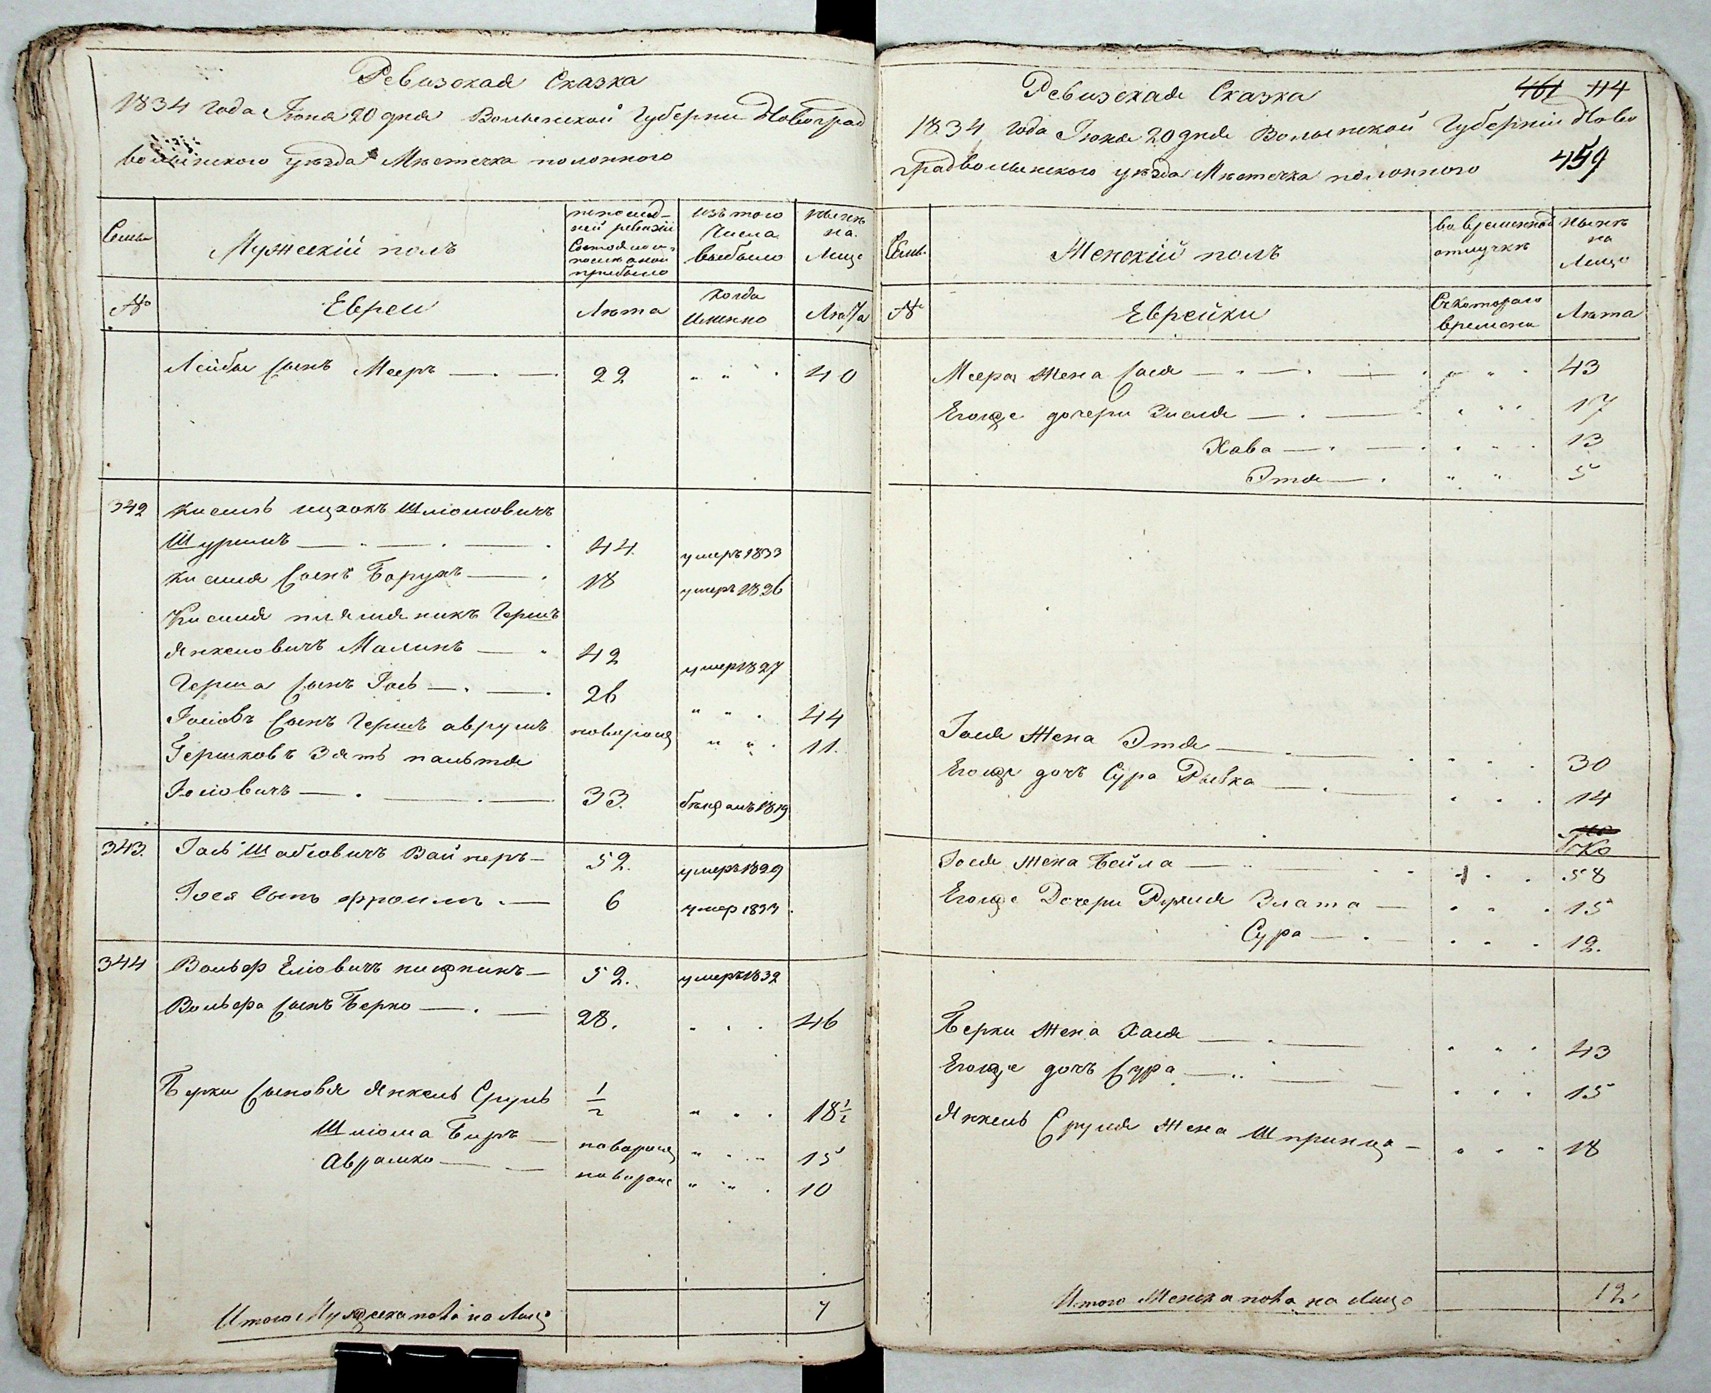 Ревизская Сказка
1834 года Июня 20 дня Волынской Губернии Новоград
волынского уезда Местечка полонного
Семьи
Мужеский полъ
по послед-
ней ревизии
Состояло и
после оной
прибыло
изъ того
Числа
выбыло
ныне
на
Лицо
№
Евреи
Лета
Когда
Именно
Лета
Лейбы Сынъ Мееръ 22 40
342 Кисиль ицхокъ Шлиомовичъ
Шуримъ 44 умеръ 1833
Кисиля Сынъ Борухъ 18 умеръ 1826
Кисиля племяникъ Гершъ
Янкелювичъ Малинъ 42 умер 1827
Герша Сынъ Іось 26 44
Іосіовъ Сынъ Гершъ аврумъ 11
Гершковъ Зять пальтя
Іосіовичъ 33 1819
343 Іось Шабсіовичъ Вайнеръ 52 умеръ 1829
Іося Сынъ Фроимъ 6 умер 1833
344 Вольф Еліовичъ 52 умеръ 1832
Вольфа Сынъ Берко 28 46
Берки Сыновья Янкель Сруль 1/2 18 1/2
Шлиома Беръ новорож 15
Аврамко новорож 10
Итого Мужеска пола на Лицо 7
Ревизская Сказка 461 114
1834 года Июня 20 дня Волынской Губернии Ново
градволынского уезда Местечка полонного 459
Семьи
Женский полъ
во временной
отлучке
ныне
на
Лицо
№
Еврейки
Съ котораго
времени
Лета
Меера Жена Сося 43
Егоже дочери Зисля 17
Хава 13
Этя 5
Іося Жена Этя 30
Егоже дочъ Сура Ривка 14
Іося Жена Бейла 58
Егоже Дочери Рухля Злата 15
Сура 12
Берки Жена Хая 43
Егоже дочъ Сура 15
Янкель Сруля Жена Шпринца 18
Итого Женска пола на Лицо 12